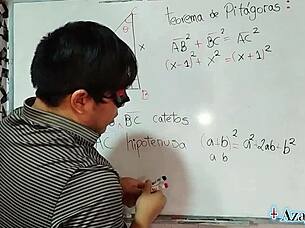 Teorema de Pitágoras:
θ
AB² + BC² = AC²
x
(x-1)² + x² = (x+1)²
B
BC catetos
AC hipotenusa (a+b)² = a² + 2ab + b²
a b
+Aza